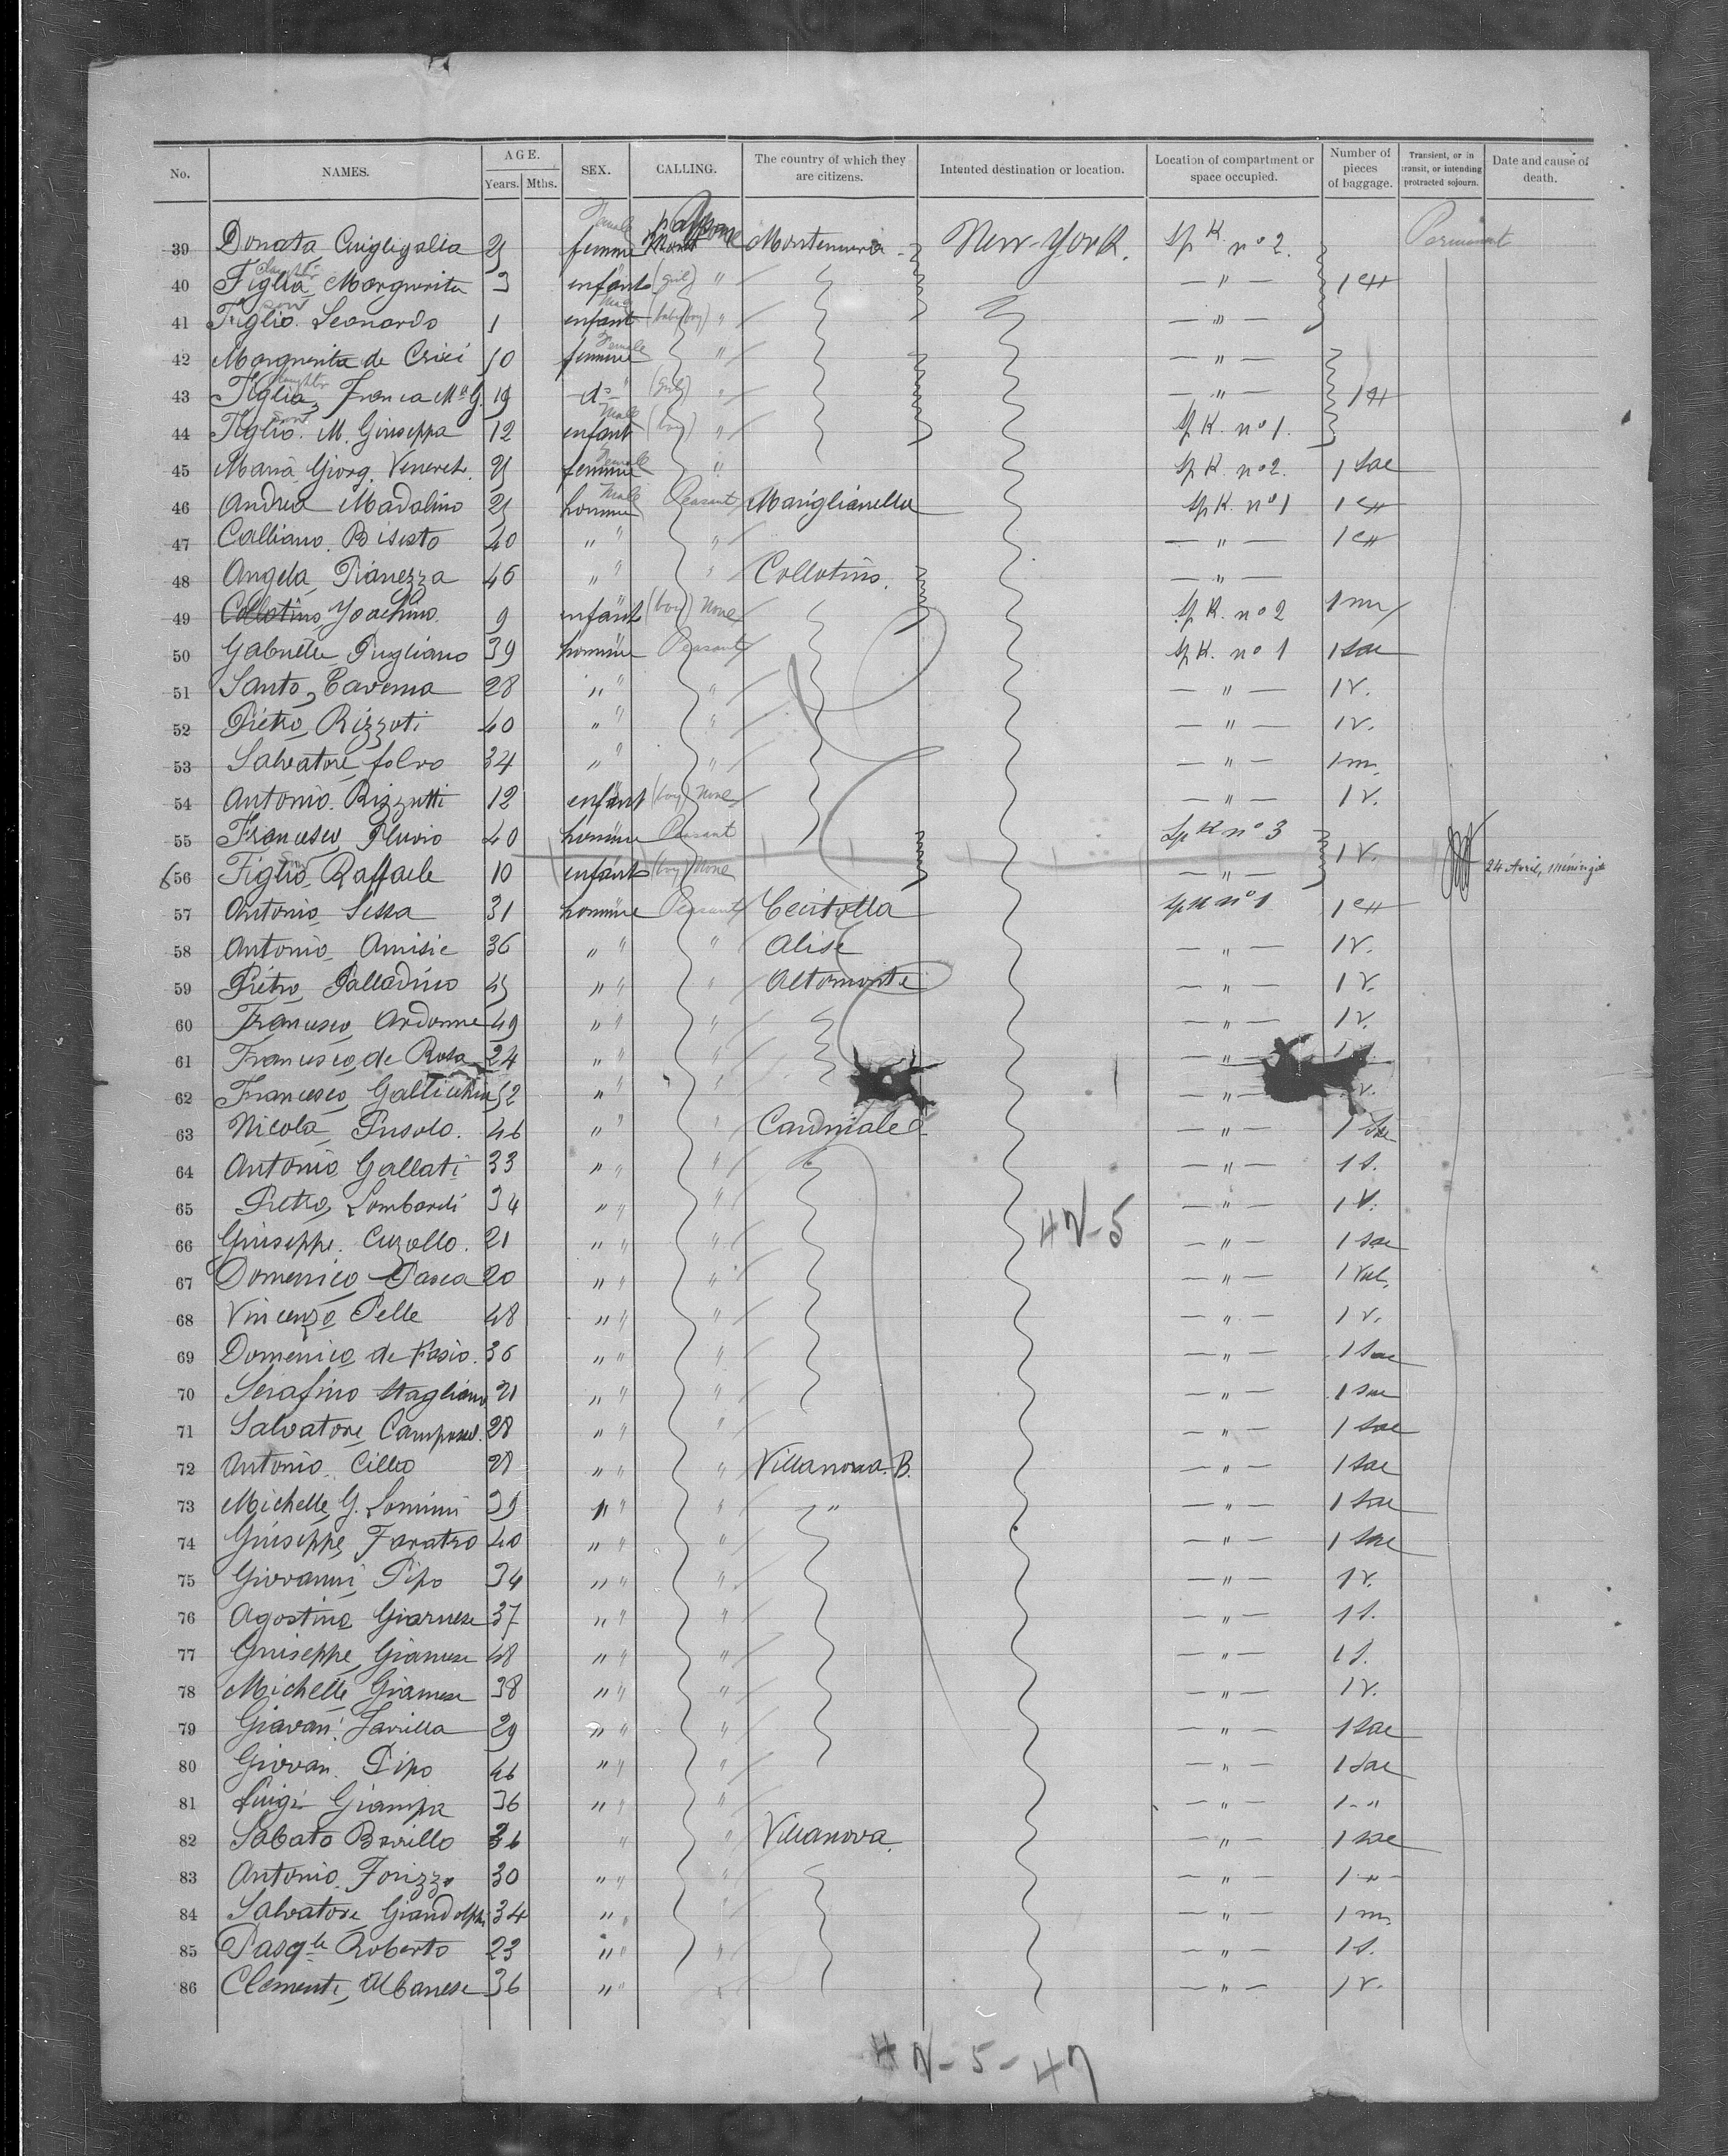 No. NAMES. AGE. Years. Mths. SEX. CALLING. The country of which they are citizens. Intented destination or location. Location of compartment or space occupied. Number of pieces of baggage. Transient, or in transit, or intending protracted sojourn. Date and cause of death.
39 Donata 25 femme Female New-York. Sp K nº 2.
40 Figlia daughter Margherita 3 enfant (girl) " — " —
41 Figlio. son Leonardo 1 enfant Male (baby boy) " — " —
42 Margherita de Crici 50 femme Female " — " —
43 Figlia, daughter Franca Mª G. 19 dº " (girl) " — " —
44 Figlio. son M. Giuseppa 12 enfant Male (boy) " Sp K. nº 1.
45 Maria Giorg. 25 femme Female " Sp K. nº 2. 1 Sac
46 Andrea Madalino 25 homme Male Peasant Mariglianella Sp K. nº 1
47 Calliano. Bisesto 40 " " " — " —
48 Angela Pianezza 46 " " " Collotino. — " —
49 Collotino, Joachino. 9 enfant " (boy) None Sp K. nº 2 1 m
50 Gabrielle Pugliano 39 homme " Peasant Sp K. nº 1 1 sac
51 Santo, Taverna 28 " " " — " — 1 V.
52 Pietro, Rizzuti 40 " " " — " — 1 V.
53 Salvatore folvo 34 " " " — " — 1 m
54 Antonio. Rizzutti 12 enfant " (boy) None — " — 1 V.
55 Francesco, Pluvio 40 homme " Peasant Sp K nº 3 1 V.
6 56 Figlio, son Raffaele 10 enfant " (boy) None — " — 24 Avril, méningite
57 Antonio Sessa 31 homme " Peasant Sp K nº 1
58 Antonio. Amisie 36 " " " Alise — " — 1 V.
59 Pietro, Palladino 45 " " " Altomonte — " — 1 V.
60 Francesco, Ardonne 49 " " " — " — 1 V.
61 Francesco, de Rosa 24 " " " — " —
62 Francesco, 52 " " " — " — V.
63 Nicola Pusolo. 46 " " " Cardinale — " — 1 Sac
64 Antonio Gallati 33 " " " — " — 1 S.
65 Pietro, Lombardi 34 " " " — " — 1 V.
66 Giuseppe. Cuzollo. 21 " " " — " — 1 sac
67 Domenico Pasca 20 " " " — " — 1 Val.
68 Vincenzo Pelle 48 " " " — " — 1 V.
69 Domenico de Fasio. 36 " " " — " — 1 Sac
70 Serafino Stagliano 21 " " " — " — 1 sac
71 Salvatore, 28 " " " — " — 1 sac
72 Antonio. Cilleo 28 " " " Villanova. B. — " — 1 sac
73 Michelle, G. Lomini 39 " " " " — " — 1 sac
74 Giuseppe, Faratro 40 " " " — " — 1 sac
75 Giovanni Pipo 34 " " " — " — 1 V.
76 Agostino, Giarnese 37 " " " — " — 1 S.
77 Giuseppe, Gianese 48 " " " — " — 1 S.
78 Michelle Gianese 38 " " " — " — 1 V.
79 Giovan. Javilla 29 " " " — " — 1 sac
80 Giovan. Pipo 46 " " " — " — 1 sac
81 Luigi Giampa 36 " " " — " — 1 - "
82 Sabato Borrillo 36 " " Villanova. — " — 1 sac
83 Antonio. Forizzo 30 " " " — " — 1 "
84 Salvatore, Giandolph 34 " " — " — 1 m
85 Pasqle Roberto 23 " " " — " — 1 S.
86 Clementi, Albanese 36 " " — " — 1 V.
4 N - 5
4 N - 5 - 47